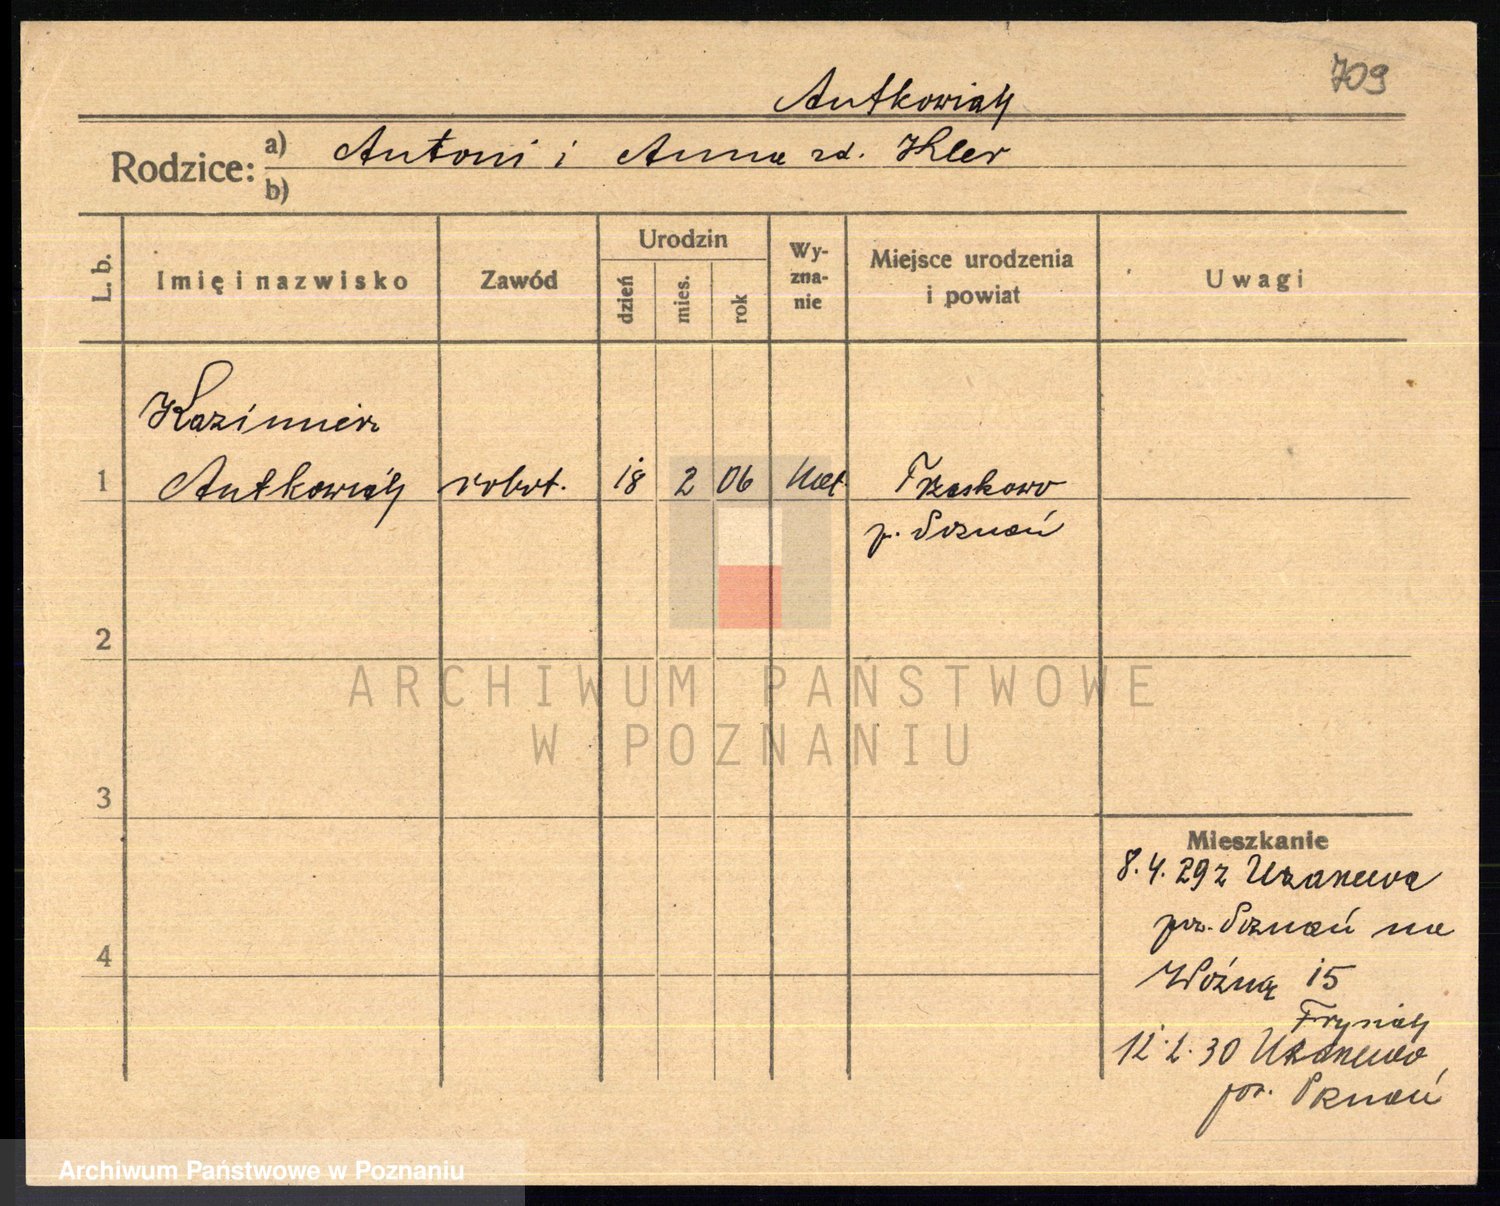 709
Antkowiak
Rodzice: a) Antoni i Anna zd. Kler
b)
L. b.
Imię i nazwisko
Zawód
Urodzin
dzień
mies.
rok
Wy-
zna-
nie
Miejsce urodzenia
i powiat
Uwagi
Kazimierz
1 Antkowiak robot. 18 2 06 kat
p. Poznań
2
ARCHIWUM PAŃSTWOWE
W POZNANIU
3
Mieszkanie
8.4.29 z
pow. Poznań na
4
Woźną 15
12.2.30
pow. Poznań
Archiwum Państwowe w Poznaniu